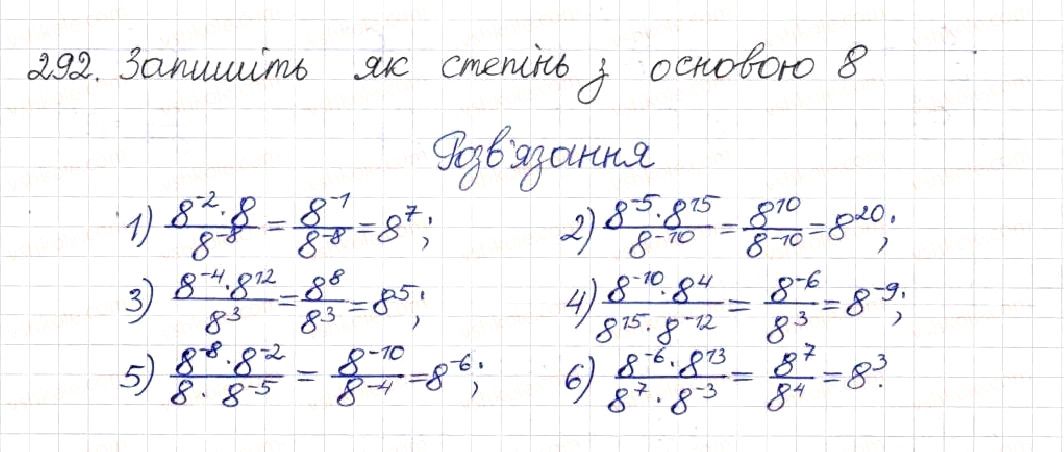 292. Запишіть як степінь з основою 8
Розв'язання
1) \frac{8^{-2} \cdot 8}{8^{-8}} = \frac{8^{-1}}{8^{-8}} = 8^{7}; 2) \frac{8^{-5} \cdot 8^{15}}{8^{-10}} = \frac{8^{10}}{8^{-10}} = 8^{20};
3) \frac{8^{-4} \cdot 8^{12}}{8^{3}} = \frac{8^{8}}{8^{3}} = 8^{5}; 4) \frac{8^{-10} \cdot 8^{4}}{8^{15} \cdot 8^{-12}} = \frac{8^{-6}}{8^{3}} = 8^{-9};
5) \frac{8^{-8} \cdot 8^{-2}}{8 \cdot 8^{-5}} = \frac{8^{-10}}{8^{-4}} = 8^{-6}; 6) \frac{8^{-6} \cdot 8^{13}}{8^{7} \cdot 8^{-3}} = \frac{8^{7}}{8^{4}} = 8^{3}.